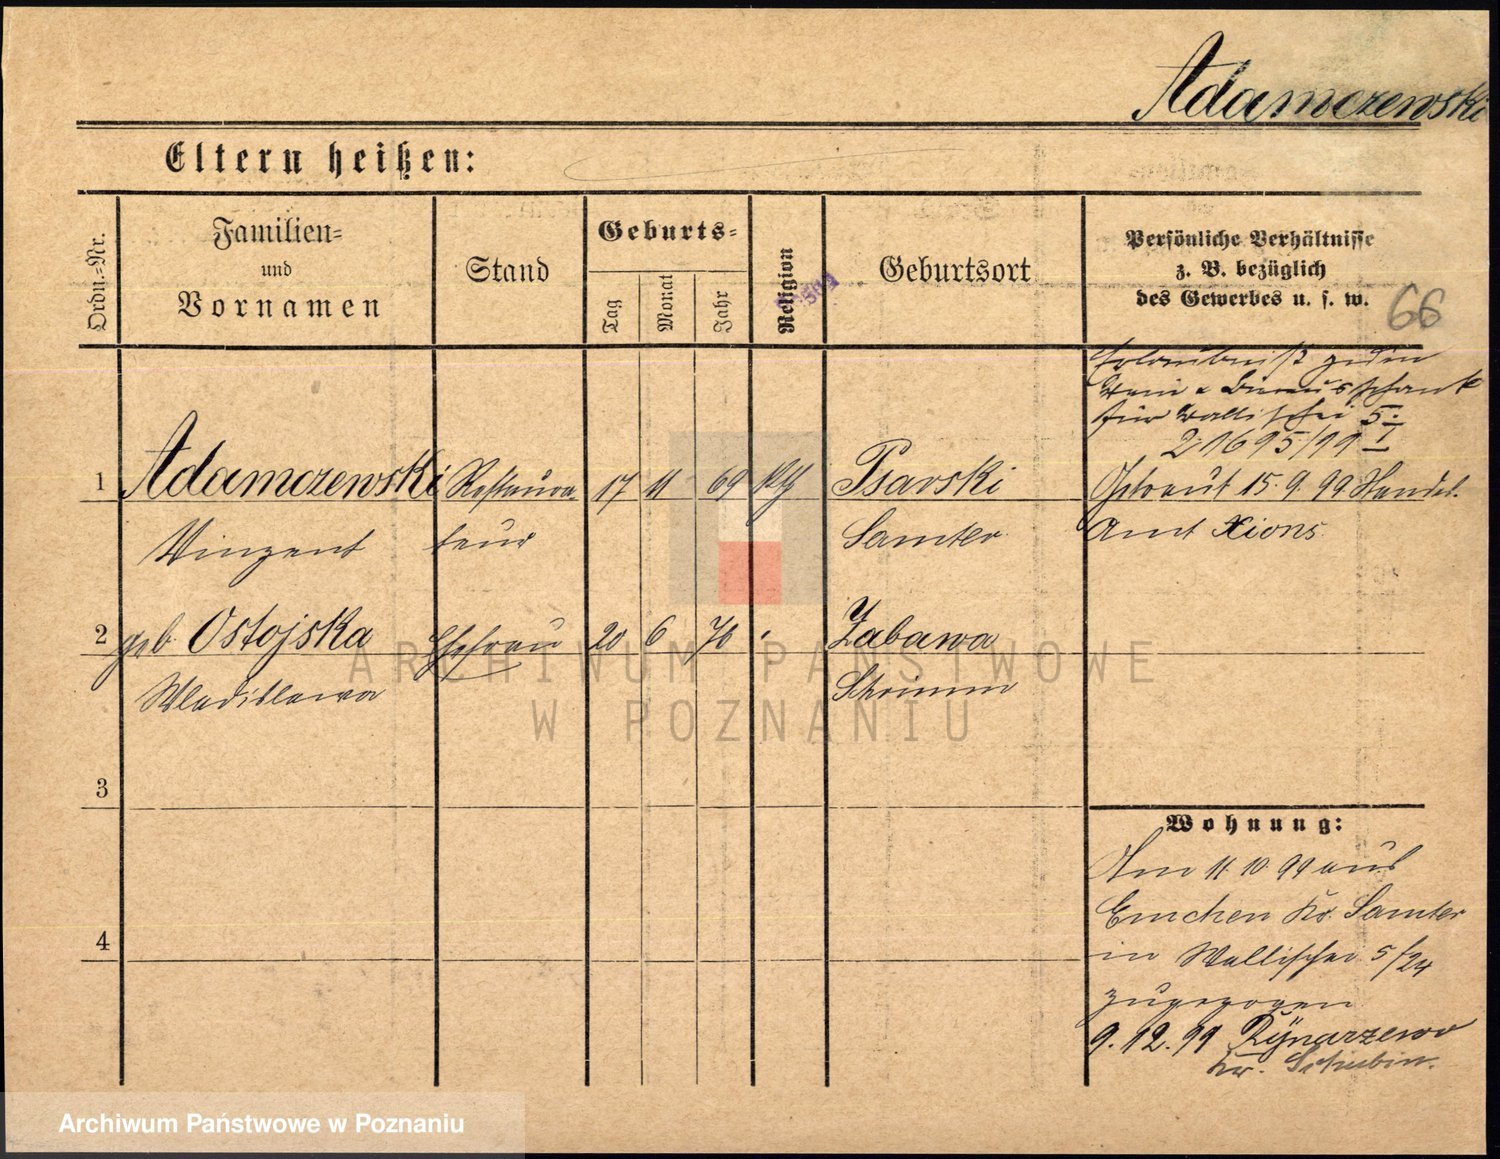 Adamczewski
Eltern heißen:
Ordn.-Nr.
Familien-
und
Vornamen
Stand
Geburts-
Tag
Monat
Jahr
Religion
Geburtsort
Persönliche Verhältnisse
z. B. bezüglich
des Gewerbes u. s. w.
66
Erlaubniß zu den
Wein & Bierausschank
für Wallischei 5.
21695/99 I
1 Adamczewski Restaura 17 11 69 kth Psarski
Getraut 15. 9. 99 Handel.
Vinzent teur Samter
Amt Xions
2 geb. Ostojska Ehefrau 20 6 76 Zabawa
Wladislawa Schrimm
3
4
Wohnung:
Am 11. 10. 99 aus
Emchen Kr. Samter
in Wallischei 5/24
zugezogen
9. 12. 99 Rynarzewo
Kr. Schubin.
ARCHIWUM PAŃSTWOWE
W POZNANIU
Archiwum Państwowe w Poznaniu